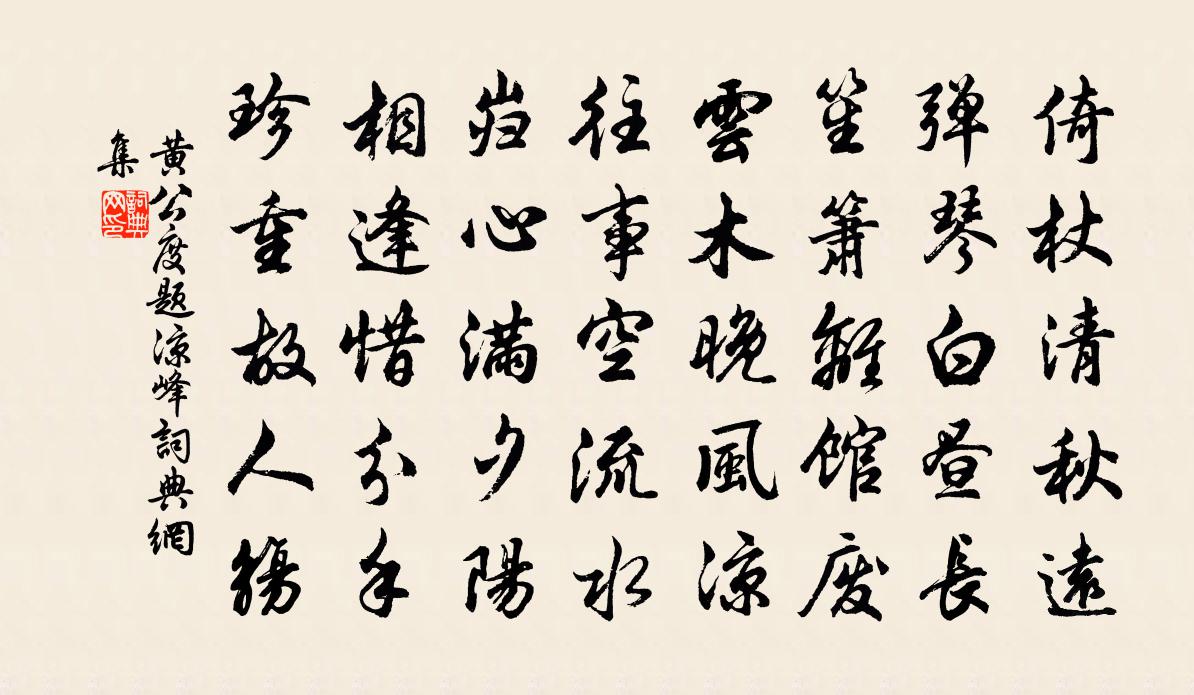 倚杖清秋遠
弾琴白昼長
笙簫離館廢
雲木晚風凉
往事空流水
歸心滿夕陽
相逢惜分手
珍重故人觴
黄公度題凉峰詞典網
集
詞典網印